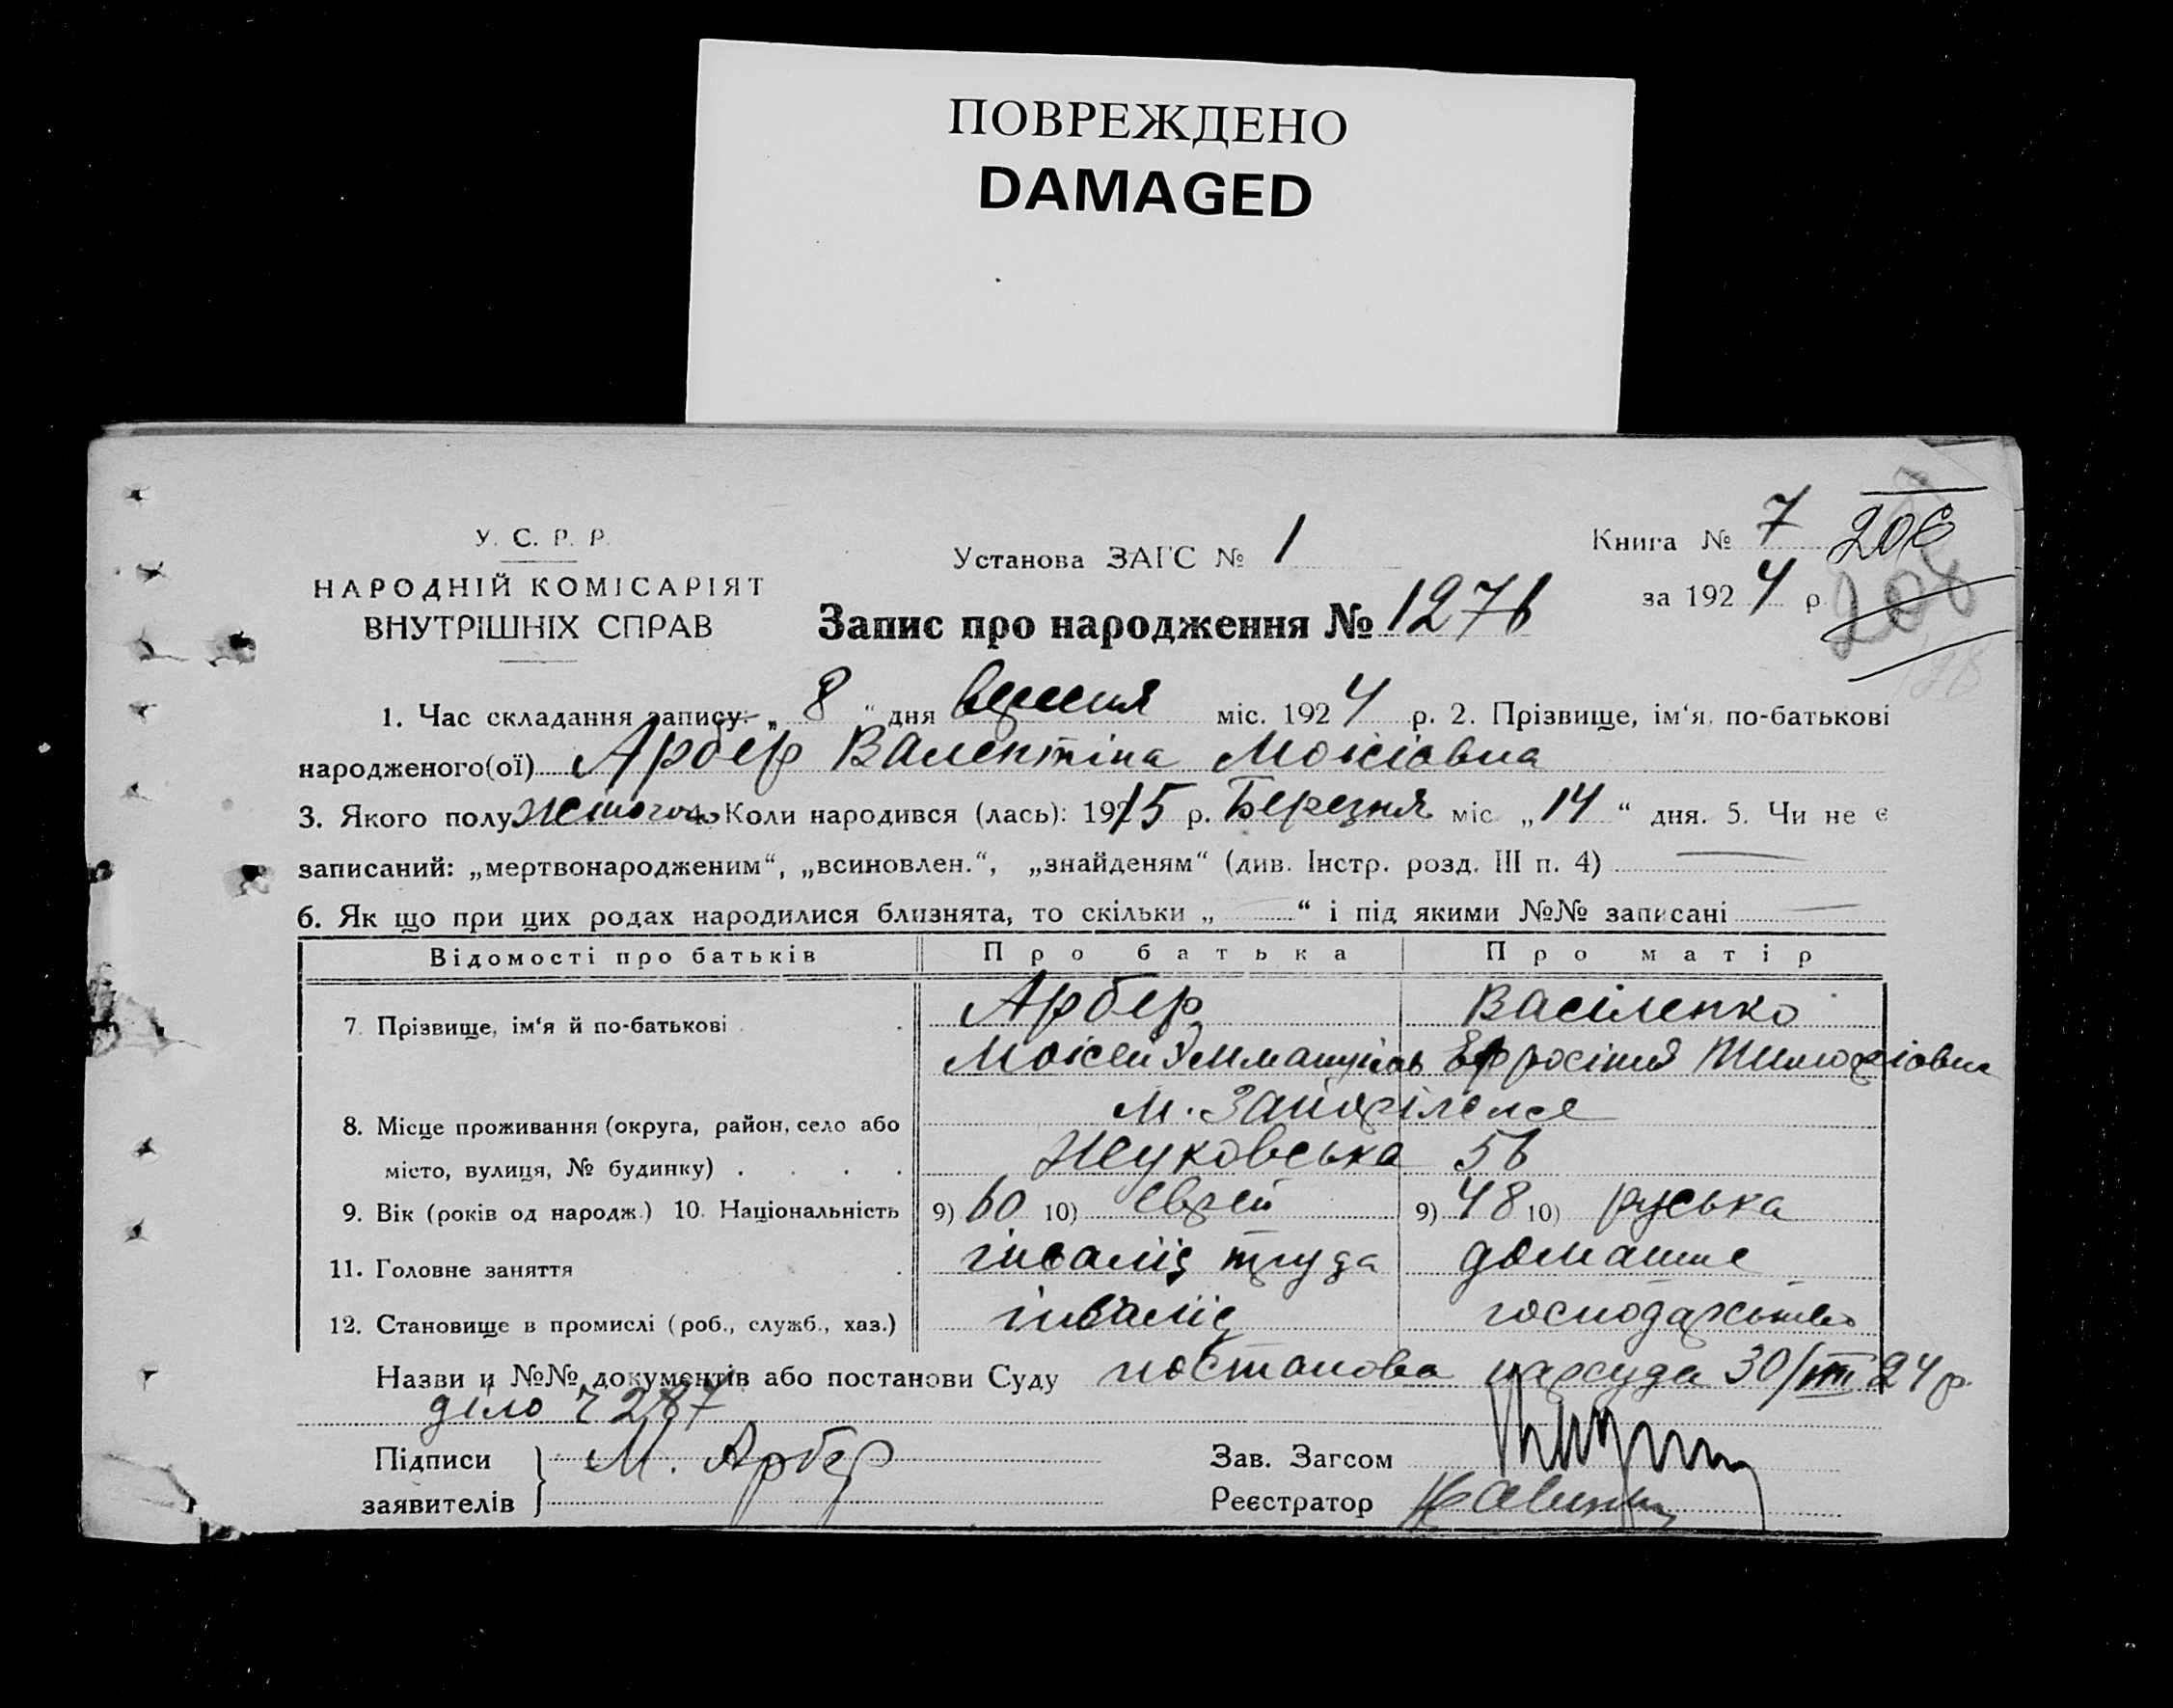 ПОВРЕЖДЕНО
DAMAGED
У. С. Р. Р.
НАРОДНІЙ КОМІСАРІЯТ
ВНУТРІШНІХ СПРАВ
Установа ЗАГС № 1
Книга № 7
206
за 1924 р.
208
Запис про народження № 1276
1. Час складання запису: „ 8 “ дня вересня міс. 1924 р. 2. Прізвище, ім‘я, по-батькові
народженого(ої) Арбер Валентіна Моісіовна
3. Якого полу жіного 4. Коли народився (лась): 1915 р. Березня міс. „14“ дня. 5. Чи не є
записаний: „мертвонародженим“, „всиновлен.“, „знайденям“ (див. Інстр. розд. III п. 4)
6. Як що при цих родах народилися близнята, то скільки „ “ і під якими №№ записані
Відомості про батьків Про батька Про матір
7. Прізвище, ім‘я й по-батькові Арбер Василенко
Моісей Єфросінія
8. Місце проживання (округа, район, село або
місто, вулиця, № будинку) Жуковська 56
9. Вік (років од народж.) 10. Національність 9) 60 10) Єврей 9) 48 10) руська
11. Головне заняття інваліс труда домашнє
12. Становище в промислі (роб., служб., хаз.) інваліс господарьство
Назви и №№ документів або постанови Суду постанова нарсуда 30/VIII 24 р.
діло ч 287
Підписи
заявителів М. Арбер
Зав. Загсом
Реєстратор